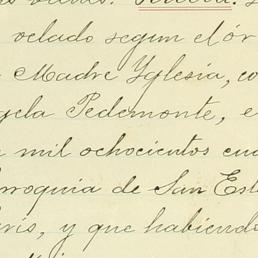 velado segun el ór
Madre Yglesia, co
gela Pedemonte, e
mil ochocientos cua
rroquia de San Est
ris, y que habiendo